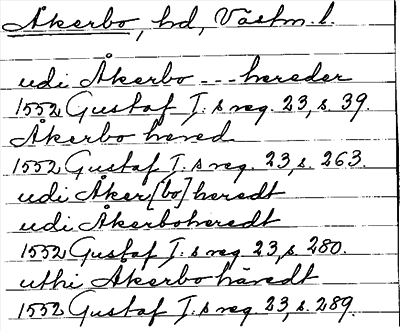 Åkerbo, hd, Västm. l.
udi Åkerbo --- hereder
1552 Gustaf I:s reg. 23, s. 39.
Åkerbo hered
1552 Gustaf I:s reg. 23, s. 263.
udi Åker[bo] heredt
udi Åkerboheredt
1552 Gustaf I:s reg. 23, s. 280.
uthi Åkerbo häredt
1552 Gustaf I:s reg. 23, s. 289.